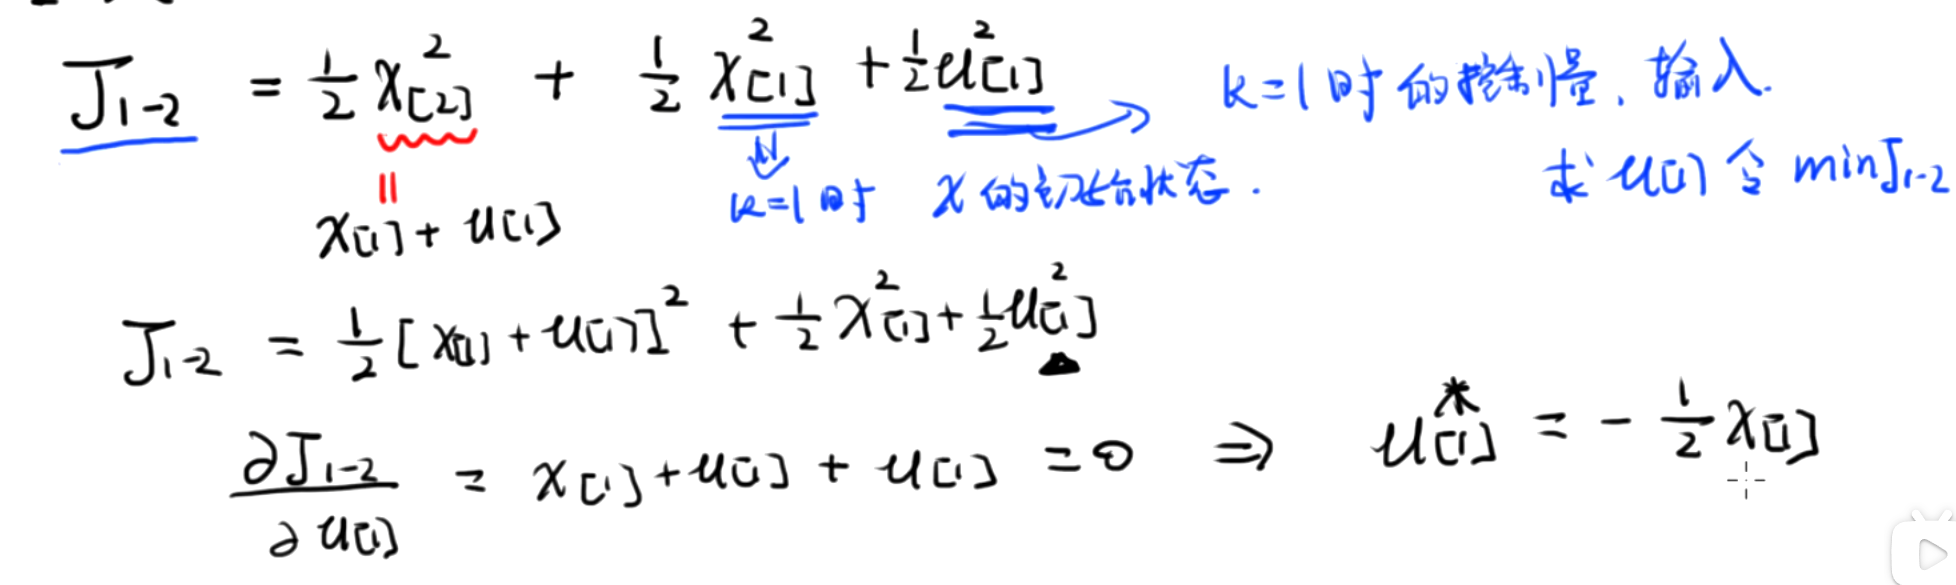 J₁₋₂ = ½ x²[2] + ½ x²[1] + ½ u²[1]
k=1时的控制量,输入.
求u[1]令 min J₁₋₂
k=1时 x的初始状态.
x[1] + u[1]
J₁₋₂ = ½ [x[1] + u[1]]² + ½ x²[1] + ½ u²[1]
∂J₁₋₂/∂u[1] = x[1] + u[1] + u[1] = 0 ⇒ u*[1] = - ½ x[1]